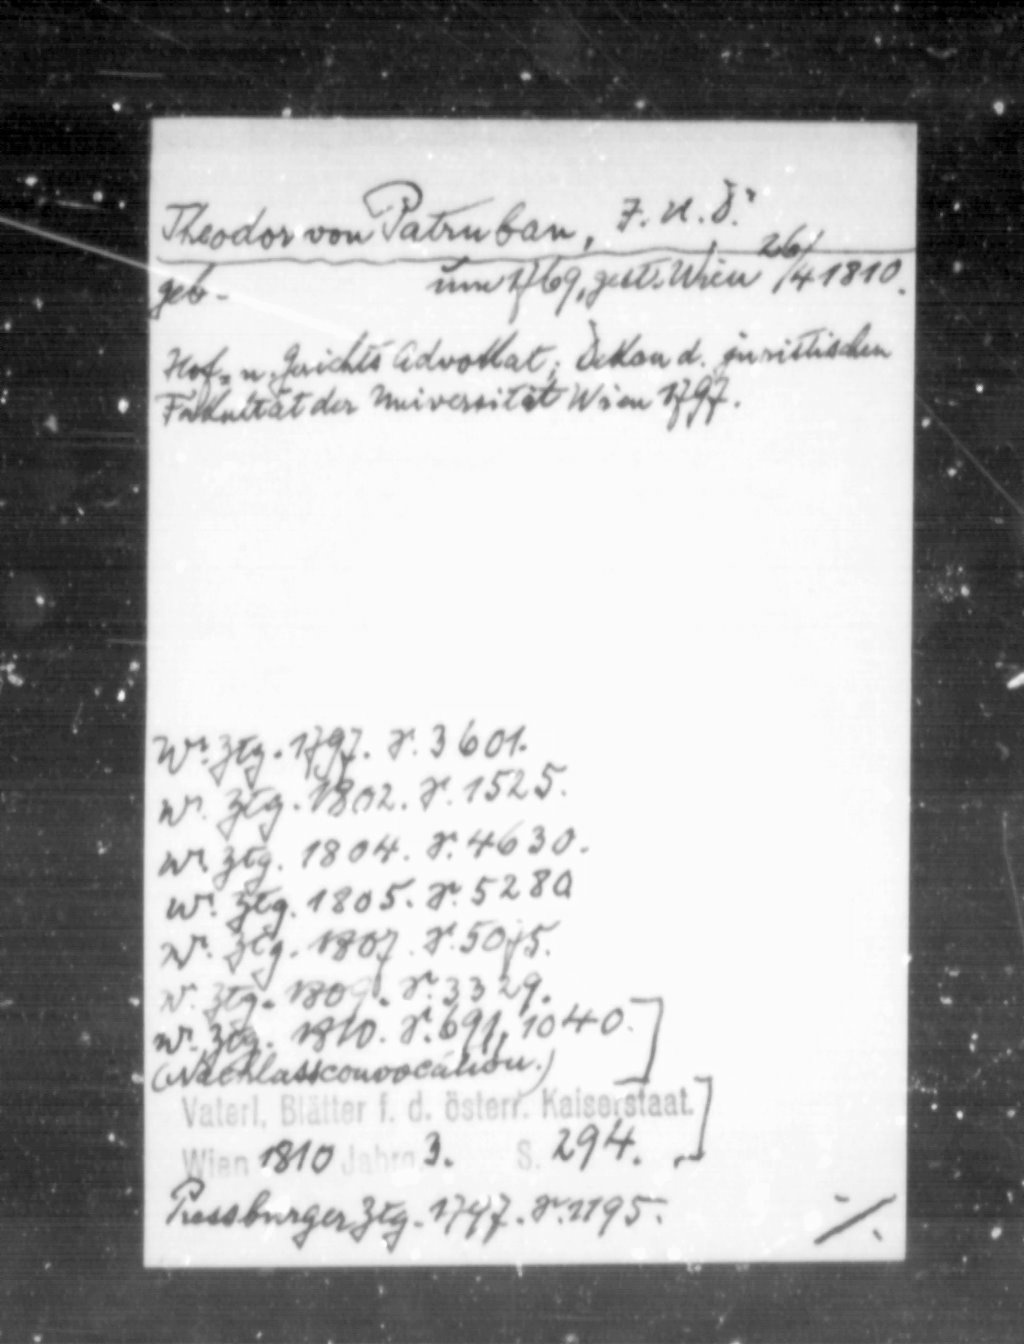 Theodor von Patruban, J. U. D.
geb. um 1769, gest. Wien 26/4 1810.
Hof- u. Gerichts Advokat; Dekan d. juristischen
Fakultät der Universität Wien 1797.
Wr. Ztg. 1797. S. 3601.
Wr. Ztg. 1802. S. 1525.
Wr. Ztg. 1804. S. 4630.
Wr. Ztg. 1805. S. 5280
Wr. Ztg. 1807. S. 5075.
Wr. Ztg. 1809. S. 3329.
Wr. Ztg. 1810. S. 691, 1040.
(Nachlassconvocation.)
Vaterl. Blätter f. d. österr. Kaiserstaat.
Wien 1810 Jahrg. 3. S. 294.
Pressburger Ztg. 1797. S. 1195.